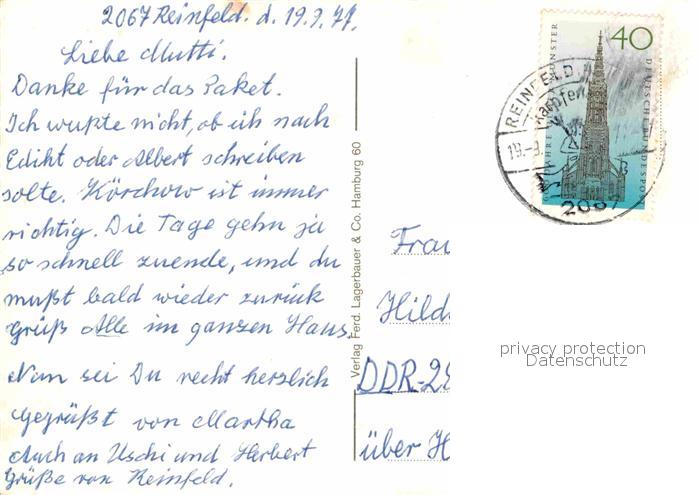 2067 Reinfeld. d. 19.9.77.
Liebe Mutti.
Danke für das Paket.
Ich wußte nicht, ob ich nach
Ediht oder Albert schreiben
solte. Körchow ist immer
richtig. Die Tage gehn ja
so schnell zuende, und du
mußt bald wieder zurück
Grüß Alle im ganzen Haus.
Nun sei Du recht herzlich
gegrüßt von Martha
Auch an Uschi und Herbert
Grüße von Reinfeld.
Verlag Ferd. Lagerbauer & Co. Hamburg 60
40
DEUTSCHE BUNDESPOST
REINFELD
Karpfen
19.-9.
2067
Frau
Hild
DDR-28
über H
privacy protection
Datenschutz